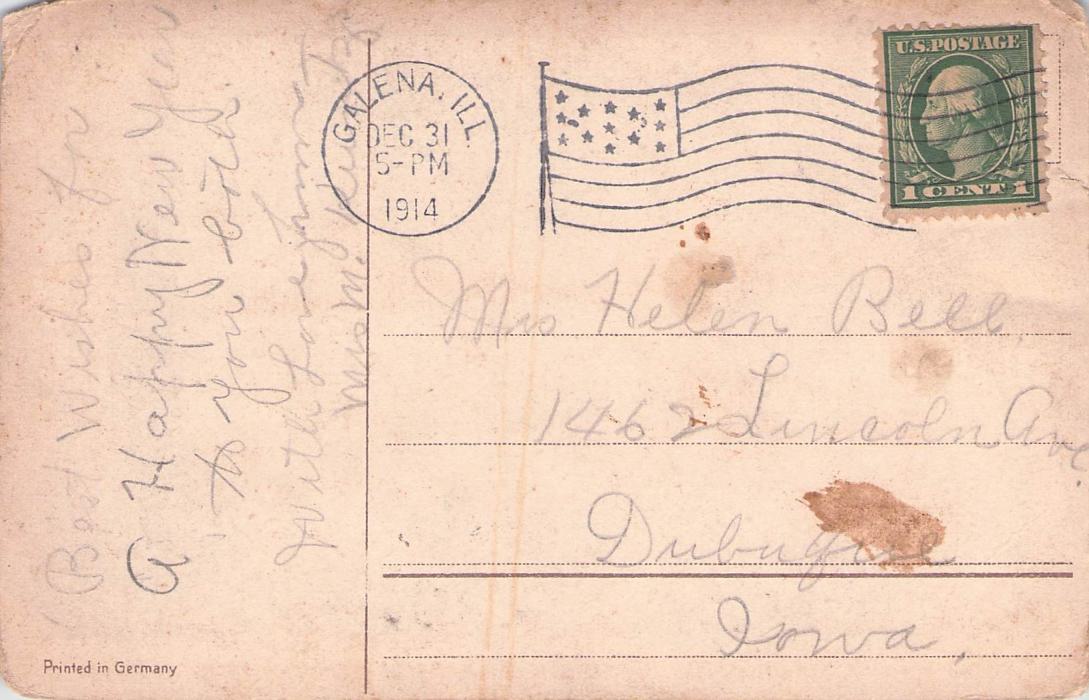 Best Wishes for
a Happy New Year
to you both.
With Love from
Mrs M.
GALENA, ILL
DEC 31
5-PM
1914
U.S. POSTAGE
1 CENT 1
Mrs Helen Bell
1462 Lincoln Ave.
Dubuque
Iowa.
Printed in Germany